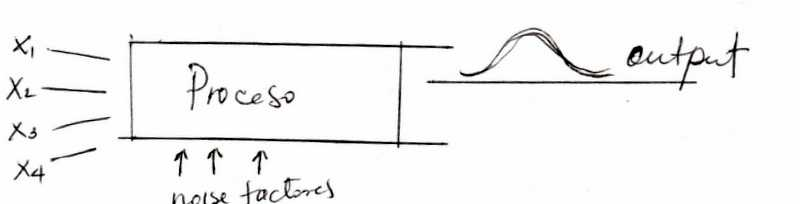 X1
X2
X3
X4
Proceso
output
noise factores